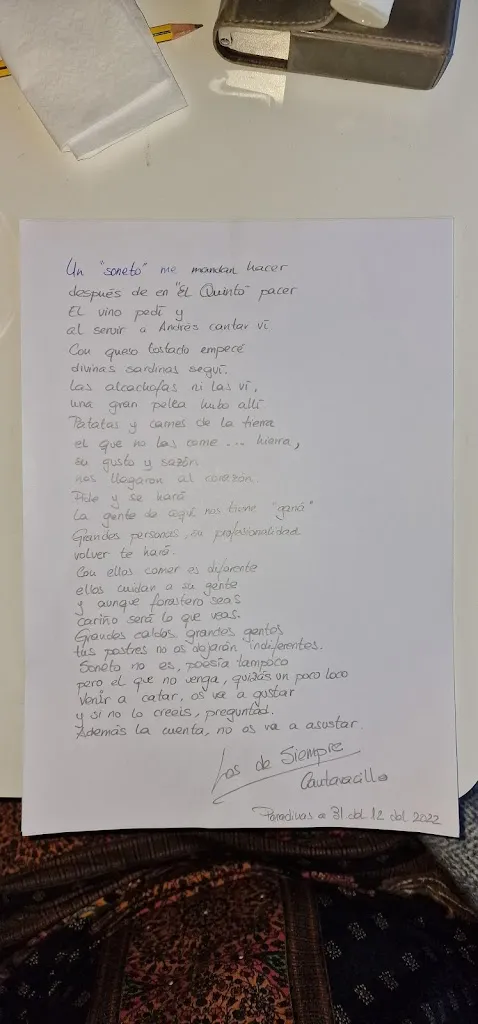 Un "soneto" me mandan hacer
después de en "El Quinto" pacer
El vino pedí y
al servir a Andrés cantar ví
Con queso tostado empecé
divinas sardinas seguí.
Las alcachofas ni las ví,
una gran pelea hubo allí
Patatas y carnes de la tierra
el que no las come ... hierra,
su gusto y sazón
nos llegaron al corazón.
Pide y se hará
La gente de aquí nos tiene "gana"
Grandes personas, su profesionalidad
volver te hará.
Con ellos comer es diferente
ellos cuidan a su gente
y aunque forastero seas
cariño será lo que veas.
Grandes caldos, grandes gentes
tus postres no os dejarán indiferentes.
Soneto no es, poesía tampoco
pero el que no venga, quizás un poco loco
Venir a catar, os va a gustar
y si no lo creeis, preguntad.
Además la cuenta, no os va a asustar.
Los de Siempre
a 31 del 12 del 2022